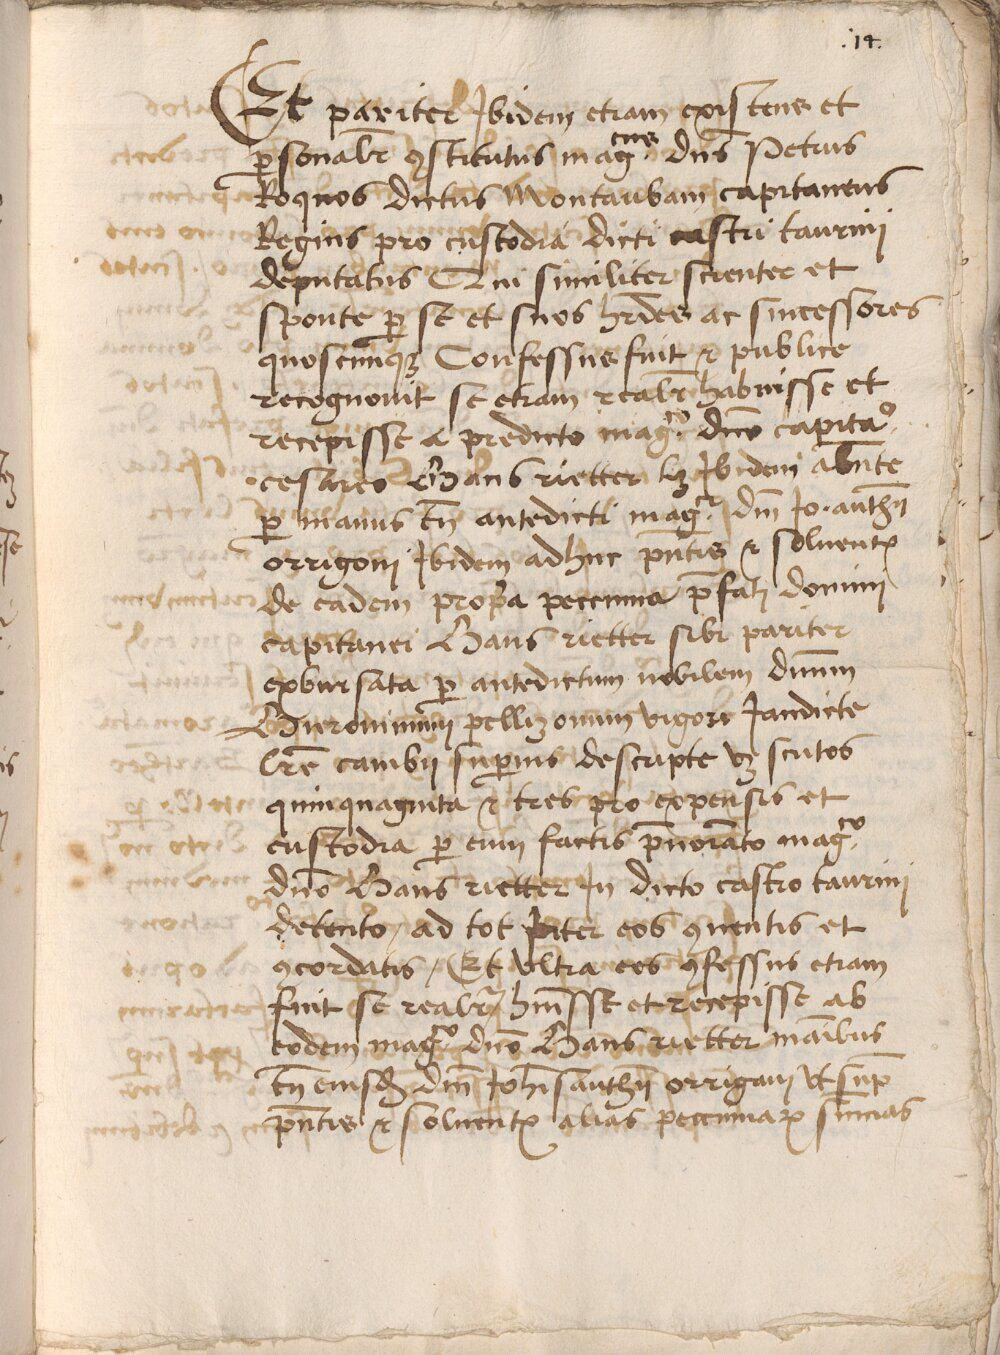 .14.
Et pariter Ibidem etiam existens et
p̱sonalr̃ ꝯstitutus magcus dns̃ Petrus
Roquos dictus Montaubam capitaneus
Regius pro custodia dicti castri taurinij
deputatus Qui similiter scienter et
sponte ꝑ se et suos hr̃des ac successores
quoscumqꝫ Confessus fuit ⁊ publice
recognouit se etiam realr̃ habuisse et
recepisse a predicto magco. dño capitao.
cesareo Hans rietter lꝫ Ibidem abñte
ꝑ manus tñ antedicti magci. dñi Jo. anthij
orrigonj Ibidem adhuc pñtis ⁊ soluentꝭ
de eadem propria peccunia p̃fati dominj
capitanei Hans rietter sibi pariter
exbursata ꝑ antedictum nobilem dnum
Hieronimum pellizonum vigore Jamdicte
lr̃e cambij supius descripte vꝫ scutos
quinquaginta ⁊ tres pro expensis et
custodia ꝑ eum factis pñorato magco.
dño Hans rietter In dicto castro taurinj
detento, ad tot Inter eos ꝯuentis et
ꝯcordatis / Et vltra eos ꝯfessus etiam
fuit se realr̃ huisse et recepisse ab
eodem magco. dño Hans rietter manibus
tñ eiusdem dñi Johis anthij orrigonj vt sup
pñtis ⁊ soluentꝭ alias peccuniarꝝ sumas